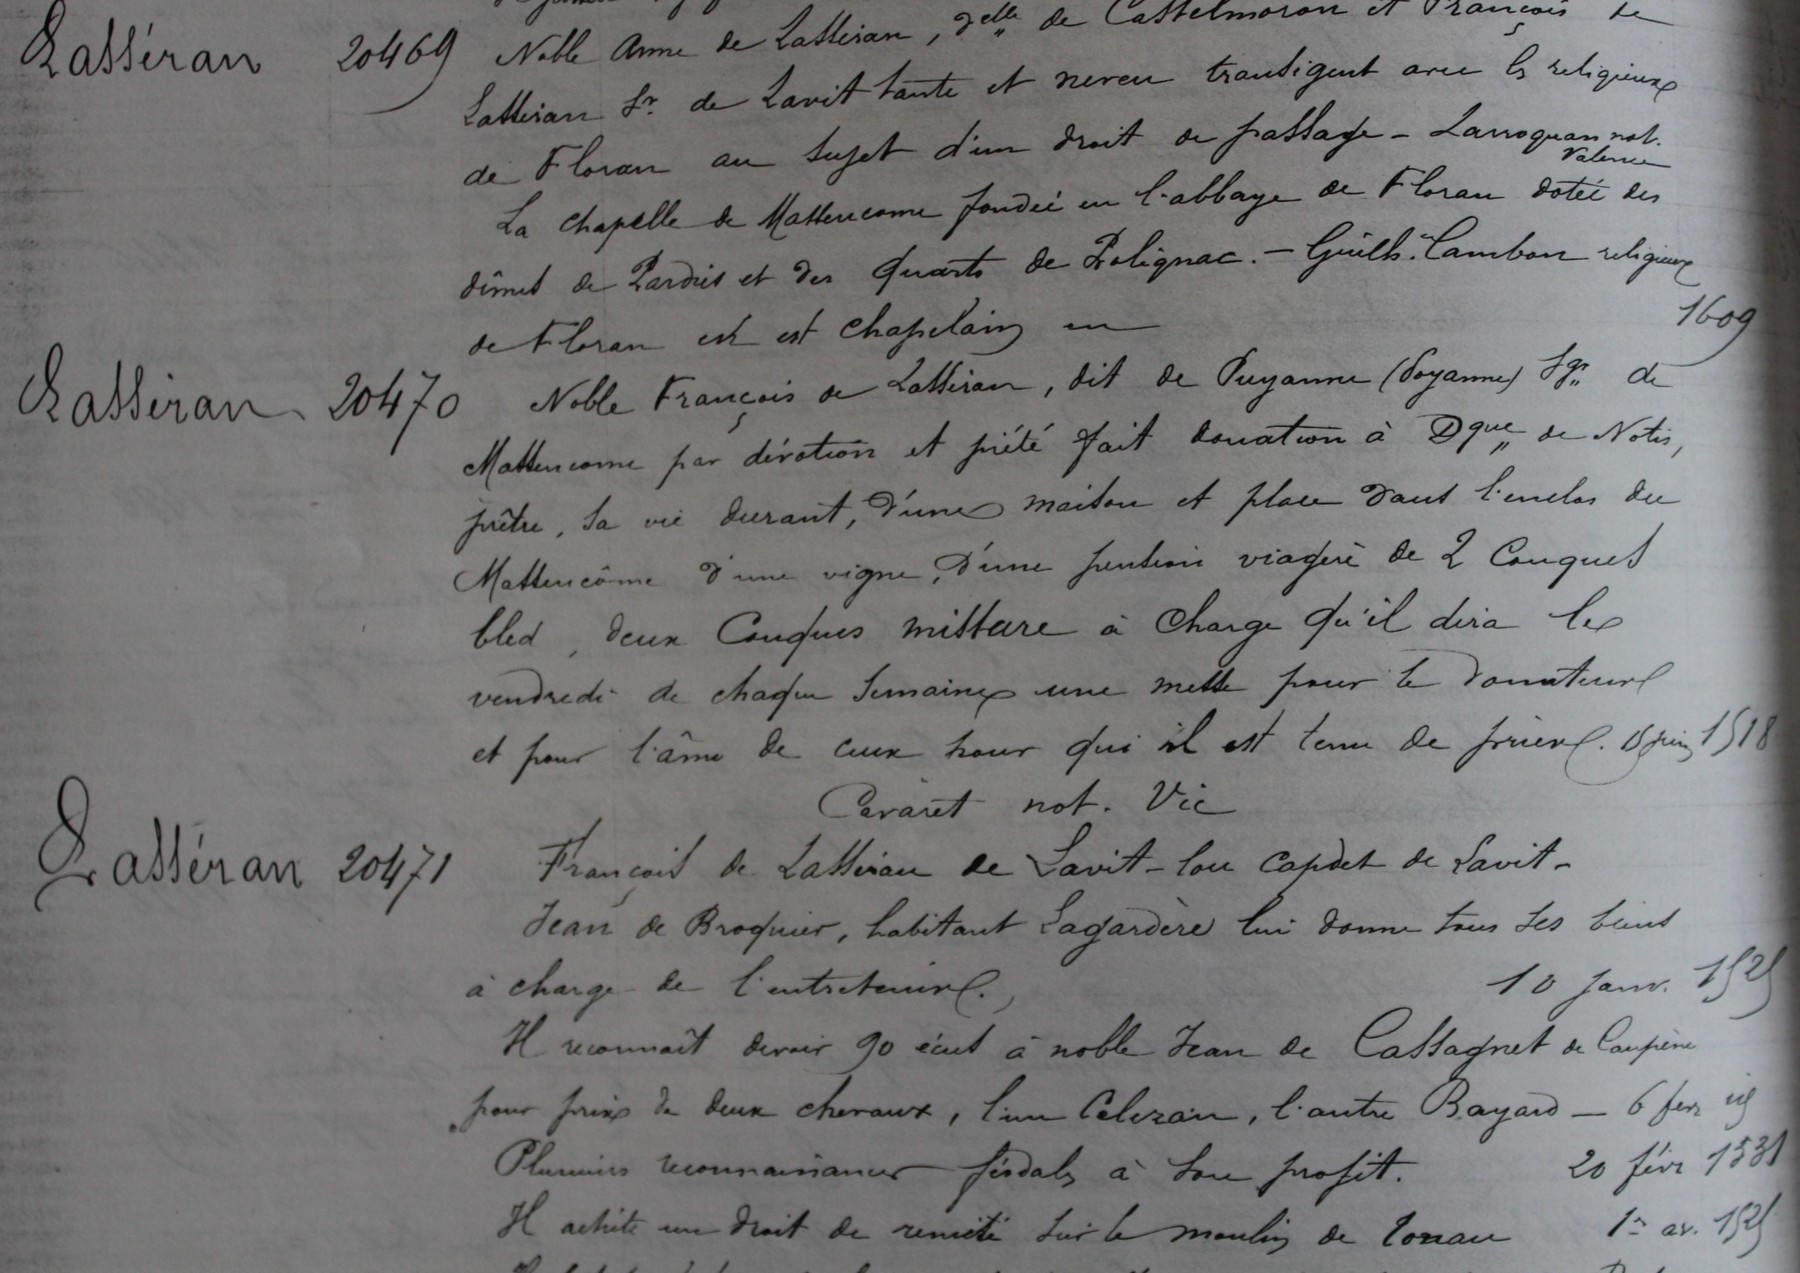 Lasséran 20469 Noble Anne de Lasseran, delle de Castelmoron et François de
Lasseran Sr. de Lavit tante et neveu transigent avec les religieux
de Floran au sujet d'un droit de passage - Larroquan not.
Valence
La chapelle de Massencome fondée en l'abbaye de Floran dotée des
dîmes de et des quarts de Polignac. - Guilh. Cambon religieux
de Floran est chapelain en 1609
Lasséran 20470 Noble François de Lasséran, dit de Puyanne (Poyanne) Sgr de
Massencome par dévotion et piété fait donation à Dque de Notis,
prêtre, sa vie durant, d'une maison et place dans l'enclos de
Massencôme d'une vigne, d'une pension viagère de 2 Conques
bled, deux Conques misture à charge qu'il dira le
vendredi de chaque semaine une messe pour le donateur
et pour l'âme de ceux pour qui il est tenu de prier. juin 1518
Cavaret not. Vic
Lasséran 20471 François de Lasséran de Lavit - lou capdet de Lavit -
Jean de Broquier, habitant Lagardère lui donne tous ses biens
à charge de l'entretenir. 10 janv. 1525
Il reconnaît devoir 90 écus à noble Jean de Cassagnet de Caupène
pour prix de deux chevaux, l'un l'autre Bayard - 6 fevr
Plusieurs reconnaissances féodales à son profit. 20 févr 1531
Il achète un droit de sur le moulin de 1er av. 1525